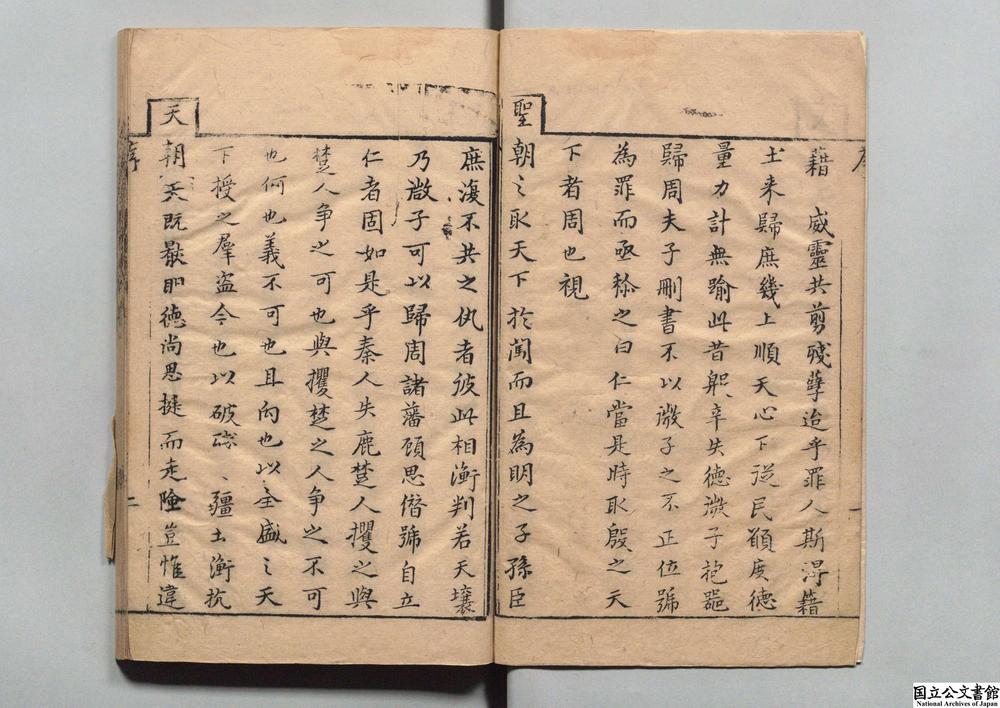 藉　威靈共剪殘孽迨乎罪人斯得籍
土来歸庶幾上順天心下從民願度德
量力計無踰此昔躬辛失德微子抱噐
歸周夫子刪書不以微子之不正位號
為罪而亟稱之曰仁當是時取殷之天
下者周也視
聖朝之取天下於闖而且為明之子孫臣
庶復不共之仇者彼此相衡判若天壤
乃啟子可以歸周諸藩顧思僭號自立
仁者固如是乎秦人失鹿楚人攫之與
楚人爭之可也與攫楚之人爭之不可
也何也義不可也且向也以全盛之天
下授之羣盜今也以破碎、疆土衡抗
天朝天既厭眀德尚思挺而走險豈惟違
序
二
国立公文書館
National Archives of Japan